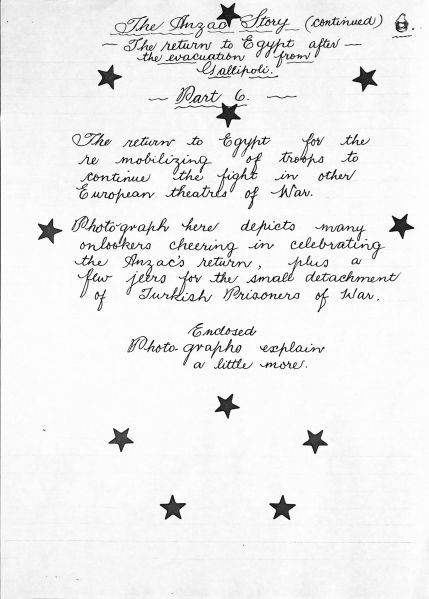 The Anzac Story (continued) 6.
— The return to Egypt after —
the evacuation from
Gallipoli.
— Part 6. —
The return to Egypt for the
re mobilizing of troops to
continue the fight in other
European theatres of War.
Photo-graph here depicts many
onlookers cheering in celebrating
the Anzac's return, plus a
few jeers for the small detachment
of Turkish Prisoners of War.
Enclosed
Photo-graphs explain
a little more.